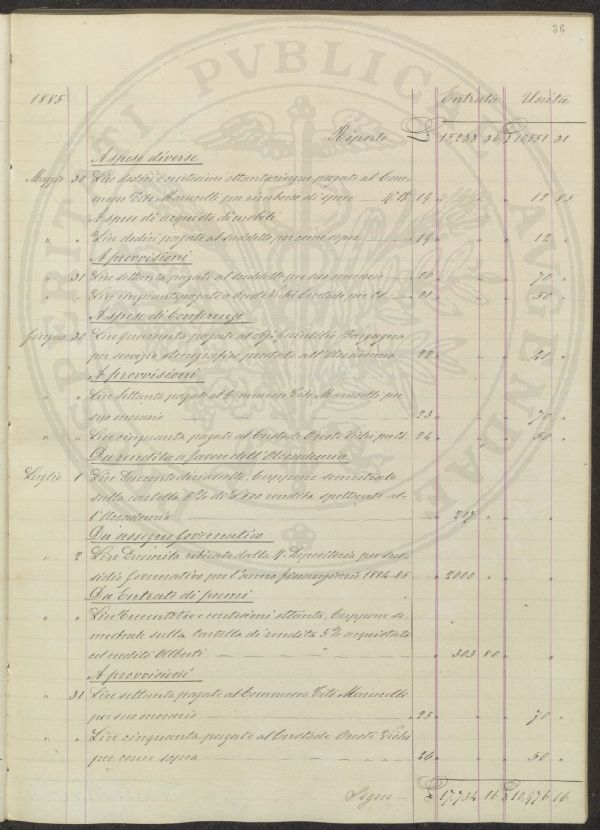 36
1885 Entrata Uscita
Riporto £ 15,233 36 £ 10,551 31
A spese diverse
Maggio 30 Lire dodici e centesimi ottantacinque pagate al Com-
messo Tito Marucelli per rimborso di spese 12 85
A spese di acquisto di mobili
" " Lire dodici pagate al suddetto per come sopra " 19 " " 12 "
A provvisioni
" 31 Lire settanta pagate al suddetto per suo mensuario " 20 " " 70 "
" " Lire cinquanta pagate a Oreste Vichi Custode per Cs. " 21 " " 50 "
A spese di Conferenze
Giugno 30 Lire quaranta pagate al Quintilio
per servizio stenografico prestato all'Accademia 22 " " 40 "
A provvisioni
" " Lire settanta pagate al Commesso Tito Marucelli per
suo mensuario " 23 " " 70 "
" " Lire cinquanta pagate al Custode Oreste Vichi " 24 " " 50 "
Da rendita a favore dell'Accademia
Luglio 1 Lire Duecentodiciassette, Cuppone semestrale
sulla cartella 5% di rendita spettante al-
l'Accademia " 217 " " "
Da assegno Governativo
" 2 Lire Duemila ritirate dalla R. Depositeria per sus-
sidio Governativo per l'anno finanziario 1884-85 " 2000 " " "
Da Entrate di premi
" " Lire Trecentotre e centesimi ottanta, Cuppone se-
mestrale sulla Cartella di rendita 5% acquistata
col reddito Alberti " 303 80 " "
A provvisioni
" 31 Lire settanta pagate al Commesso Tito Marucelli
per suo mensuario " 25 " " 70 "
" " Lire cinquanta pagate al Custode Oreste Vichi
per come sopra " 26 " " 50 "
Segue £ 17,754 16 £ 10,976 16
PROSPERITATI PVBLICAE AVGENDAE